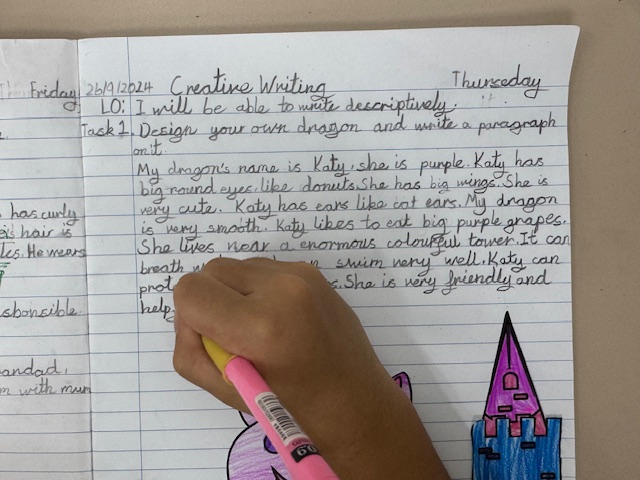 Friday
has curly
hair is
He wears
sponsible.
andad,
with mum
26/9/2024 Creative Writing Thurseday
LO: I will be able to write descriptively.
Task 1. Design your own dragon and write a paragraph
on it.
My dragon's name is Katy, she is purple. Katy has
big round eyes, like donuts. She has big wings. She is
very cute. Katy has ears like cat ears. My dragon
is very smooth. Katy likes to eat big purple grapes.
She lives near a enormous colourful tower. It can
breath swim very well. Katy can
prot She is very friendly and
help